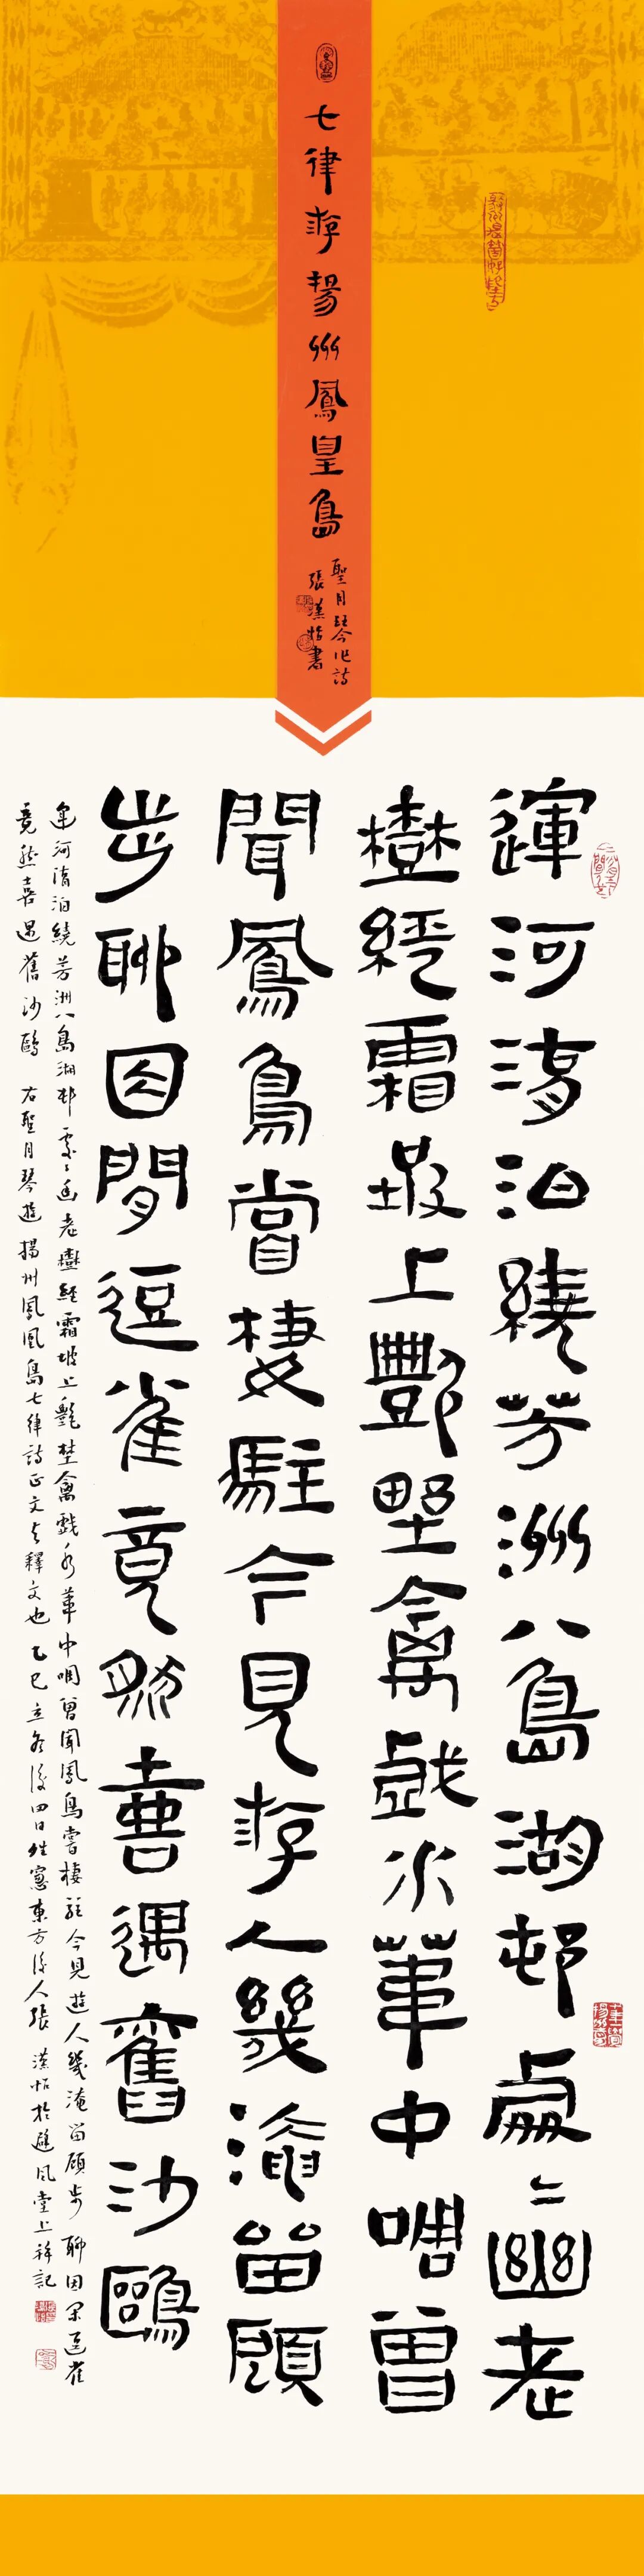 七律游揚州鳳皇島
聖月琴今作詩
張漢怡書
運河清泊繞芳洲八島湖邨處〻幽老
樹經霜坡上艷野禽戲水葦中啁曾
聞鳳鳥嘗棲駐今見游人幾淹留顧
步聊因閒逗雀竟然喜遇舊沙鷗
運河清泊繞芳洲八島湖邨處〻幽老樹經霜坡上艷埜禽戲水葦中啁曾聞鳳鳥嘗棲駐今見遊人幾淹留顧步聊因閒逗雀
竟然喜遇舊沙鷗 右聖月琴遊揚州鳳凰島七律詩正文与釋文也 乙巳立冬後四日 東方後人張漢怡於避風堂上 記